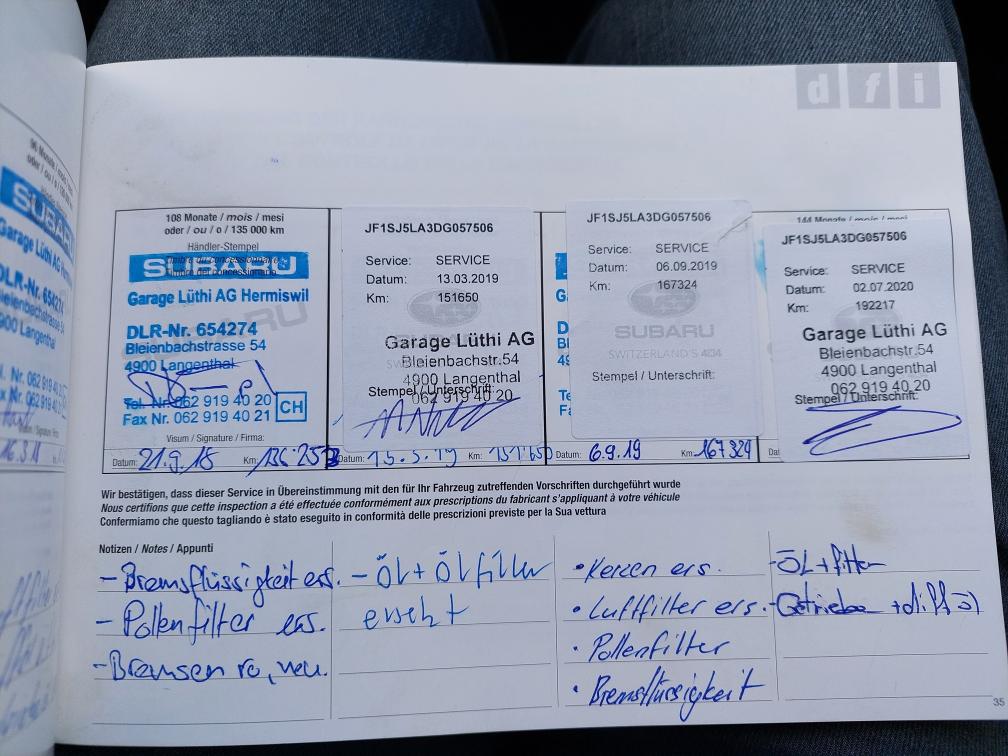 d f i
108 Monate / mois / mesi
oder / ou / o / 135 000 km
Händler-Stempel
SUBARU
Garage Lüthi AG Hermiswil
DLR-Nr. 654274
Bleienbachstrasse 54
4900 Langenthal
Tel. Nr. 062 919 40 20
Fax Nr. 062 919 40 21
CH
Visum / Signature / Firma:
Datum: 21.9.18 Km: 136'253
JF1SJ5LA3DG057506
Service: SERVICE
Datum: 13.03.2019
Km: 151650
Garage Lüthi AG
Bleienbachstr.54
4900 Langenthal
Stempel / Unterschrift:
062 919 40 20
Datum: 13.3.19 Km: 151'650
JF1SJ5LA3DG057506
Service: SERVICE
Datum: 06.09.2019
Km: 167324
SUBARU
SWITZERLAND'S 4x4
Stempel / Unterschrift:
Datum: 6.9.19 Km: 167324
144 Monate / mois / mesi
JF1SJ5LA3DG057506
Service: SERVICE
Datum: 02.07.2020
Km: 192217
Garage Lüthi AG
Bleienbachstr.54
4900 Langenthal
062 919 40 20
Stempel / Unterschrift:
Wir bestätigen, dass dieser Service in Übereinstimmung mit den für Ihr Fahrzeug zutreffenden Vorschriften durchgeführt wurde
Nous certifions que cette inspection a été effectuée conformément aux prescriptions du fabricant s'appliquant à votre véhicule
Confermiamo che questo tagliando è stato eseguito in conformità delle prescrizioni previste per la Sua vettura
Notizen / Notes / Appunti
- Bremsflüssigkeit ers.
- Pollenfilter ers.
- Bremsen ro, neu.
- ÖL + Ölfilter
ersetzt
• Kerzen ers.
• Luftfilter ers.
• Pollenfilter
• Bremsflüssigkeit
- ÖL + filter
- Getriebe + diff öl
35